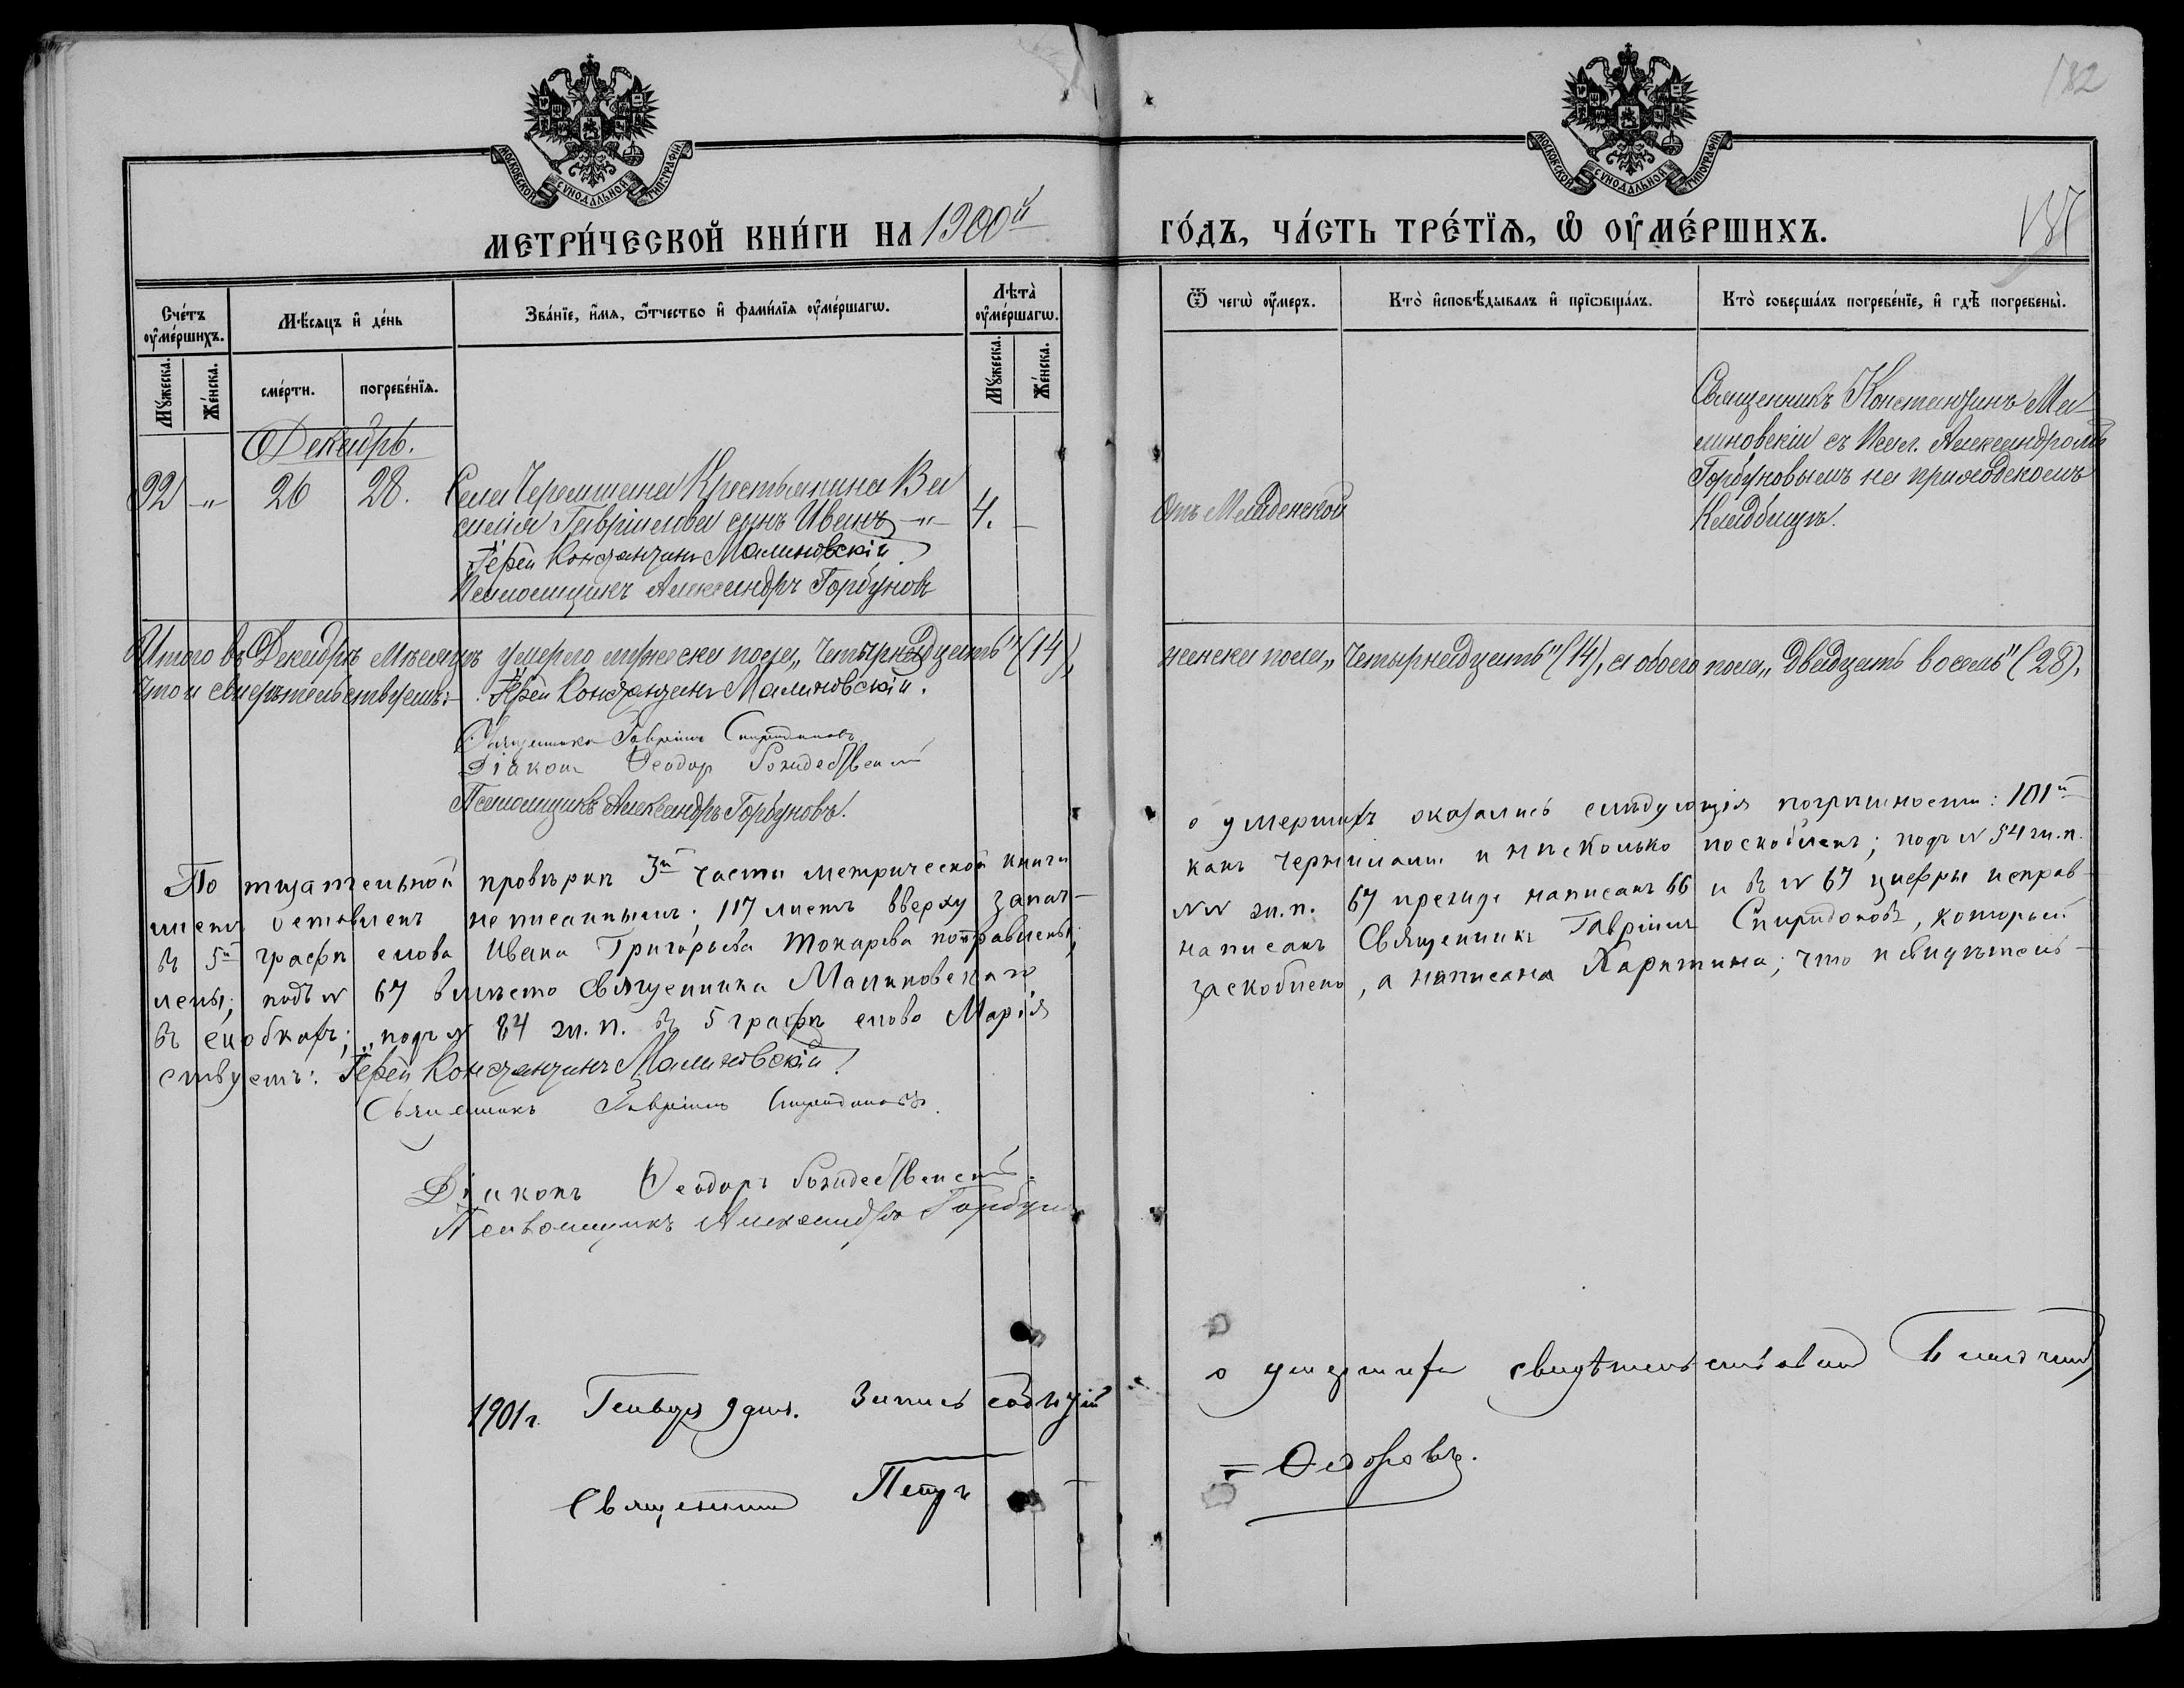 182
МОСКОВСКОЙ СѴНОДАЛЬНОЙ ТИПОГРАФІИ
МОСКОВСКОЙ СѴНОДАЛЬНОЙ ТИПОГРАФІИ
МЕТРИ́ЧЕСКОЙ КНИ́ГИ НА 1900й ГО́ДЪ, ЧА́СТЬ ТРЕ́ТЇѦ, Ѡ ОУ҆МЕ́РШИХЪ.
Сче́тъ оу҆ме́ршихъ.
Мѣ́сяцъ и҆ де́нь
Зва́нїе, и҆́мя, ѻ҆́тчество и҆ фами́лїя оу҆ме́ршагѡ.
Лѣта̀ оу҆ме́ршагѡ.
Ѿ чегѡ̀ оу҆́меръ.
Кто̀ и҆сповѣ́дывалъ и҆ прїѡбща́лъ.
Кто̀ соверша́лъ погребе́нїе, и҆ гдѣ̀ погребены̀.
Мꙋ́жеска.
Же́нска.
сме́рти.
погребе́нїя.
Мꙋ́жеска.
Же́нска.
Декабрь.
92 -"- 26 28.
Села Черемшана Крестьянина Ва
силія Гавріилова сынъ Иванъ -"- 4. -
Іерей Константинъ Малиновскій.
Псаломщикъ Александръ Горбуновъ
Отъ Младенской
Священникъ Константинъ Ма-
линовскій съ Псал. Александромъ
Горбуновымъ на приходскомъ
Кладбищѣ.
Итого въ Декабрѣ мѣсяцѣ умерло мужеска пола „Четырнадцать" (14),
женска пола „Четырнадцать" (14), а обоего пола „Двадцать восемь" (28),
что и свидѣтельствуемъ:- Іерей Константинъ Малиновскій.
Священникъ Гавріилъ Спиридоновъ
Діаконъ Ѳеодоръ Рождественскій
Псаломщикъ Александръ Горбуновъ.
По тщательной провѣркѣ 3й части метрической книги
о умершихъ оказались слѣдующія погрѣшности: 101й
листъ оставленъ неписаннымъ; 117 листъ вверху запач-
канъ чернилами и нѣсколько поскобленъ; подъ № 54 м.п.
въ 5й графѣ слова Ивана Григорьева Токарева поправлены;
№№ ж.п. 67 прежде написанъ 66 и въ № 67 цифры исправ-
лены; подъ № 67 вмѣсто Священника Малиновскаго
написанъ Священникъ Гавріилъ Спиридоновъ, который
въ скобкахъ; подъ № 84 ж.п. въ 5 графѣ слово Марія
заскоблено, а написана Харитина; что и свидѣтель-
ствуемъ: Іерей Константинъ Малиновскій.
Священникъ Гавріилъ Спиридоновъ.
Діаконъ Ѳеодоръ Рождественскій
Псаломщикъ Александръ Горбуновъ
1901 г. Генваря 9 дня. Запись
о умершихъ свидѣтельствовалъ Благочин.
Священникъ Петръ
Ѳедоровъ.